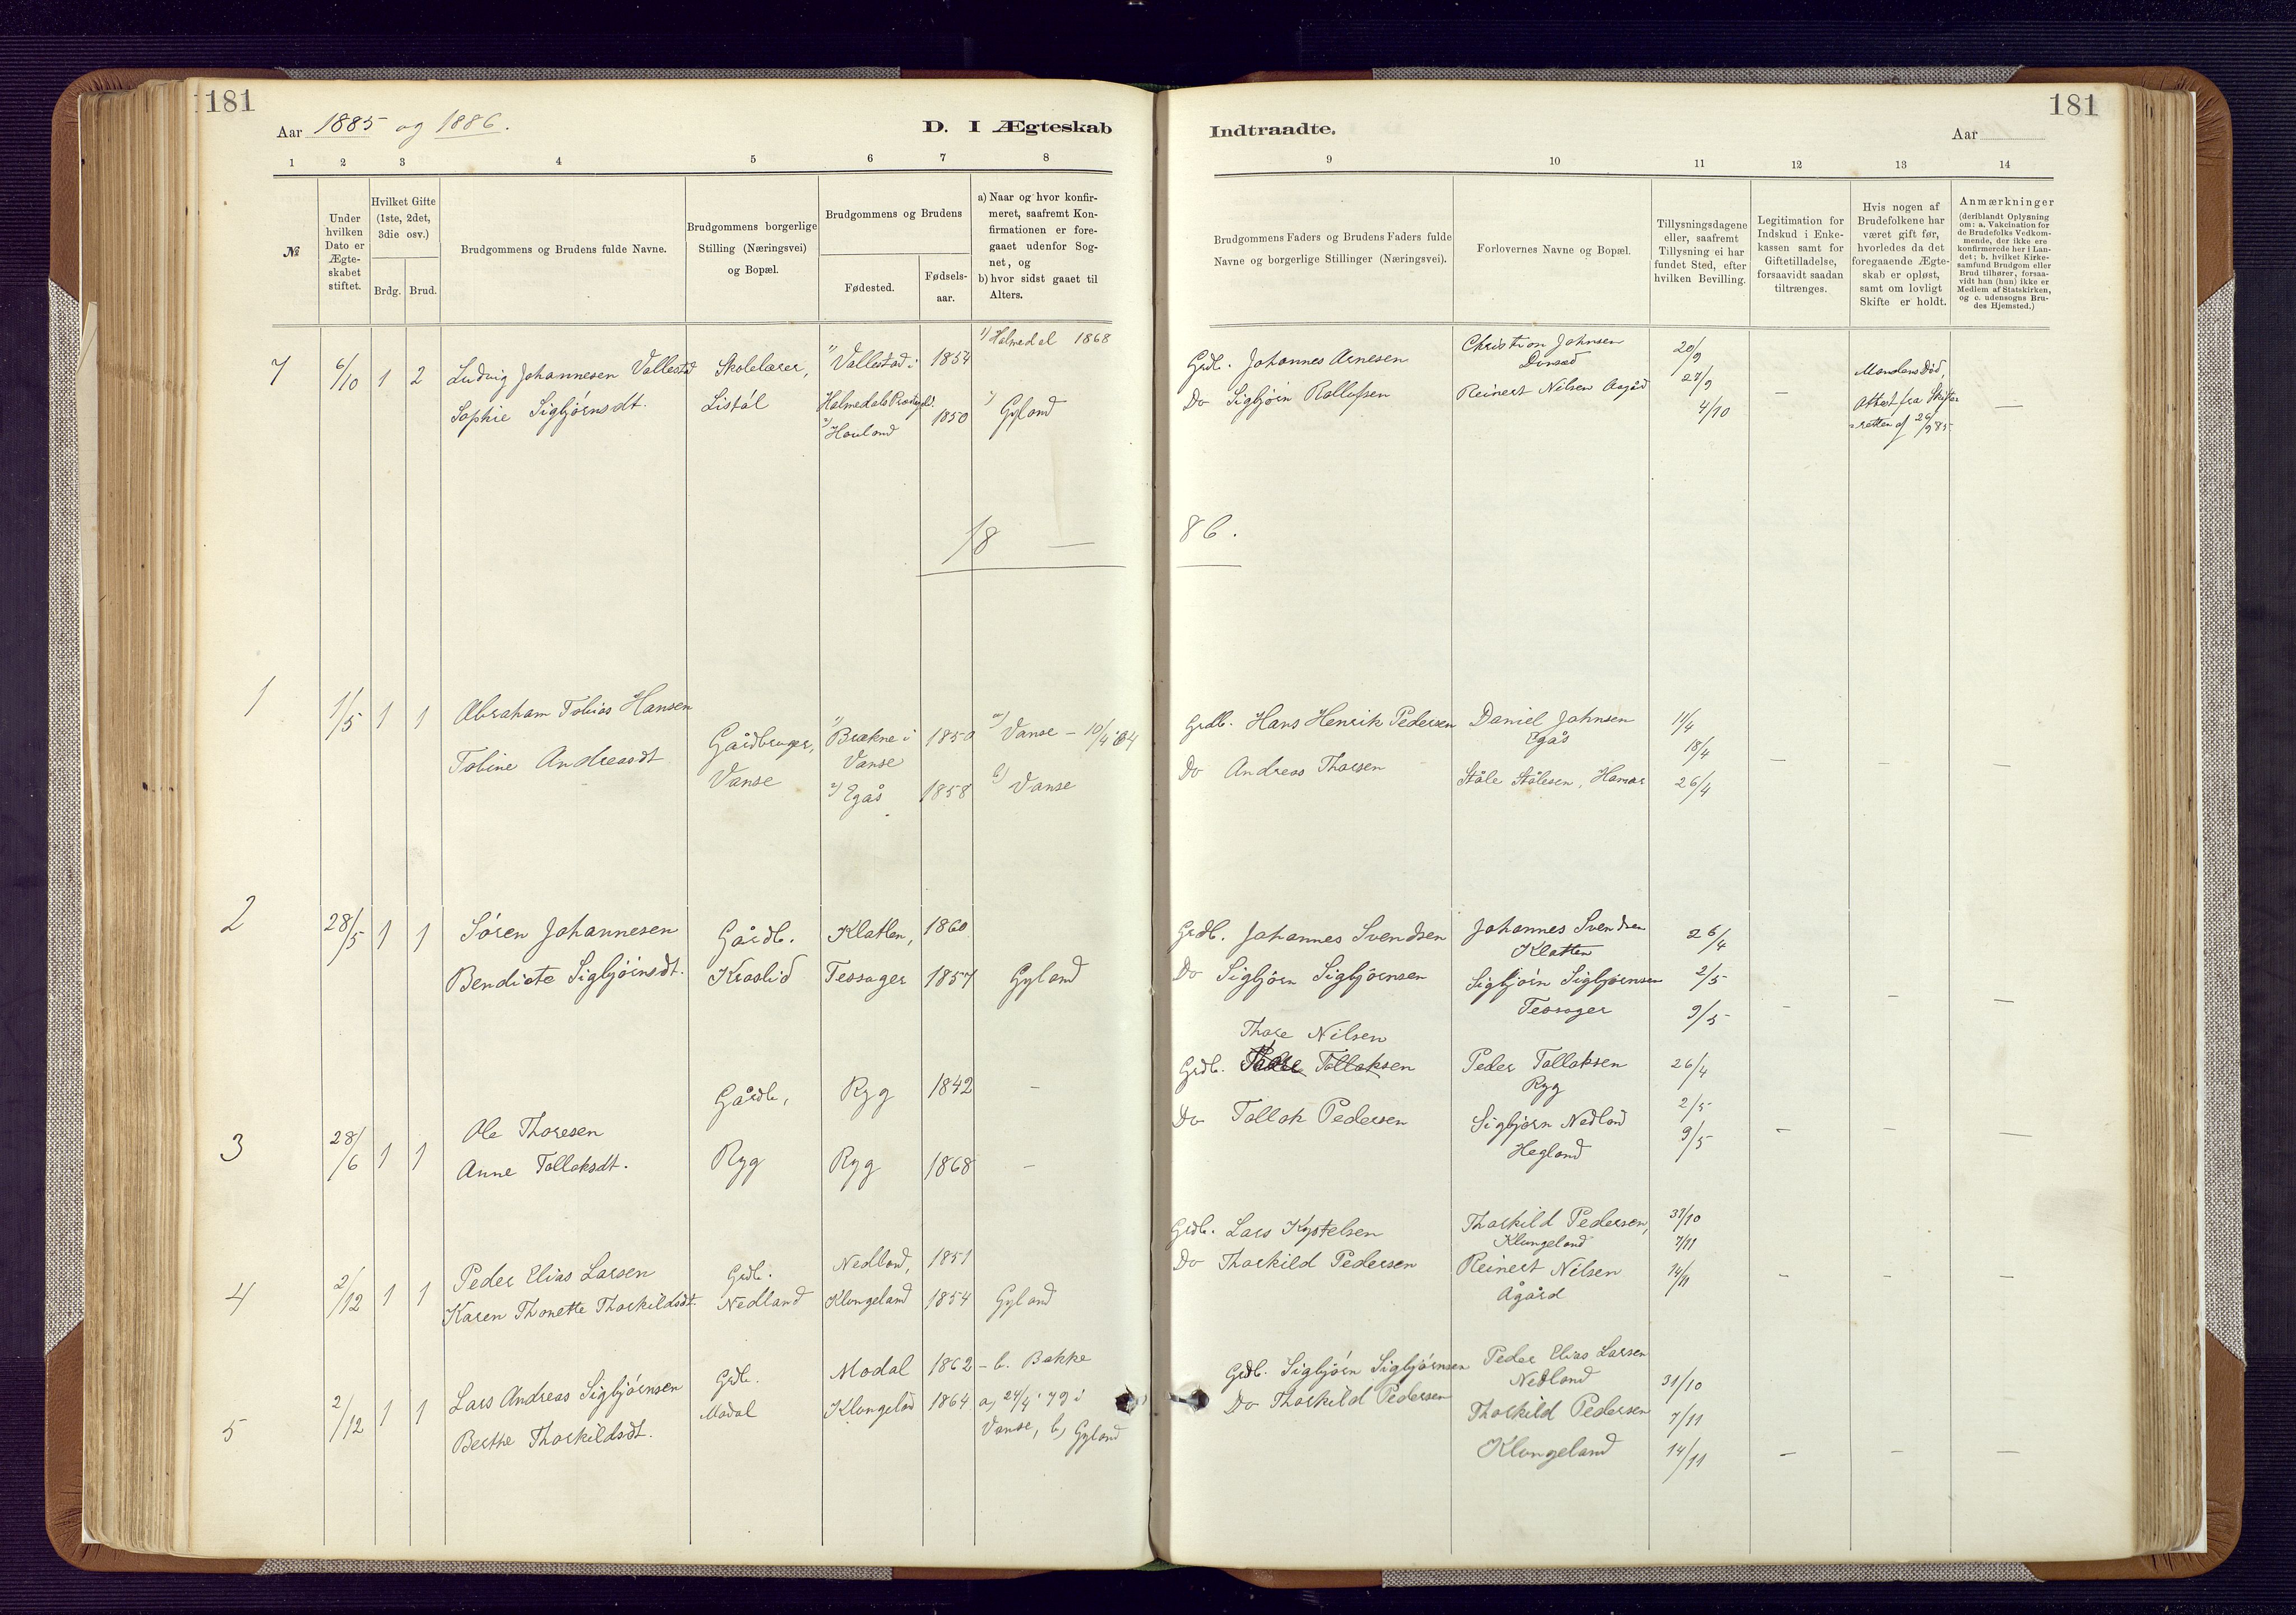 181
Aar 1885 og 1886.
D. I Ægteskab
1 2 3 4 5 6 7 8
№
Under hvilken Dato er Ægte-skabet stiftet.
Hvilket Gifte (1ste, 2det, 3die osv.)
Brdg. Brud.
Brudgommens og Brudens fulde Navne.
Brudgommens borgerlige Stilling (Næringsvei) og Bopæl.
Brudgommens og Brudens
Fødested.
Fødsels-aar.
a) Naar og hvor konfir-
meret, saafremt Kon-
firmationen er fore-
gaaet udenfor Sog-
net, og
b) hvor sidst gaaet til
Alters.
7 6/10 1 2 Ludvig Johannesen Vallestad Skolelærer, 1) Vallestad i 1854 1) Holmedal 1868
Sophie Sigbjörnsdt. Listöl Holmedals 2) Houland 1850 Gyland
18 —
1 1/5 1 1 Abraham Tobias Hansen Gårdbruger, 1) Brækne i Vanse 1850 a) Vanse – 10/4 64
Tobine Andreasdt Vanse 2) Egås 1858 b) Vanse
2 28/5 1 1 Sören Johannesen Gårdb. Klatten, 1860
Bendicte Sigbjörnsdt. Kraslid Tessager 1857 Gyland
3 28/6 1 1 Ole Thoresen Gårdb, Ryg 1842 –
Anne Tollaksdt. Ryg Ryg 1868 –
4 2/12 1 1 Peder Elias Larsen Grdb. Nedland, 1851
Karen Thonette Thorkildsdt. Nedland Klungeland 1854 Gyland
5 2/12 1 1 Lars Andreas Sigbjörnsen Grdb. Modal 1862 – b. Bakke
Berthe Thorkildsdt. Modal Klungeland 1864 a, 24/4 79 i
Vanse, b, Gyland
181
Indtraadte.
Aar
9 10 11 12 13 14
Brudgommens Faders og Brudens Faders fulde
Navne og borgerlige Stillinger (Næringsvei).
Forlovernes Navne og Bopæl.
Tillysningsdagene
eller, saafremt
Tillysning ei har
fundet Sted, efter
hvilken Bevilling.
Legitimation for
Indskud i Enke-
kassen samt for
Giftetilladelse,
forsaavidt saadan
tiltrænges.
Hvis nogen af
Brudefolkene har
været gift før,
hvorledes da det
foregaaende Ægte-
skab er opløst,
samt om lovligt
Skifte er holdt.
Anmærkninger
(deriblandt Oplysning
om: a. Vakcination for
de Brudefolks Vedkom-
mende, der ikke ere
konfirmerede her i Lan-
det; b. hvilket Kirke-
samfund Brudgom eller
Brud tilhører, forsaa-
vidt han (hun) ikke er
Medlem af Statskirken,
og c. udensogns Bru-
des Hjemsted.)
Grdb. Johannes Arnesen Christian Johnsen 20/9
Do Sigbjörn Rollofsen Reinert Nilsen Aagård 27/9 4/10 – Mandens Död,
Attest fra Skifte-
retten af 26/9 85 —
86.
Grdb. Hans Henrik Pedersen Daniel Johnsen Egås 11/4 18/4
Do Andreas Thorsen Ståle Stålesen, Hamar 26/4 – – –
Grdb. Johannes Svendsen Johannes Svendsen Klatten 26/4
Do Sigbjörn Sigbjörnsen Sigbjörn Sigbjörnsen 2/5
Tessager 9/5 – – –
Thore Nilsen
Grdb. Tollaksen Peder Tollaksen 26/4
Ryg
Do Tollak Pedersen Sigbjörn Nedland 2/5
Hegland 9/5 – – –
Grdb. Lars Kystelsen Thorkild Pedersen, 31/10
Klungeland 7/11
Do Thorkild Pedersen Reinert Nilsen 14/11
Ågård – – –
Grdb. Sigbjörn Sigbjörnsen Peder Elias Larsen
Nedland 31/10
Do Thorkild Pedersen Thorkild Pedersen 7/11
Klungeland 14/11 – – –